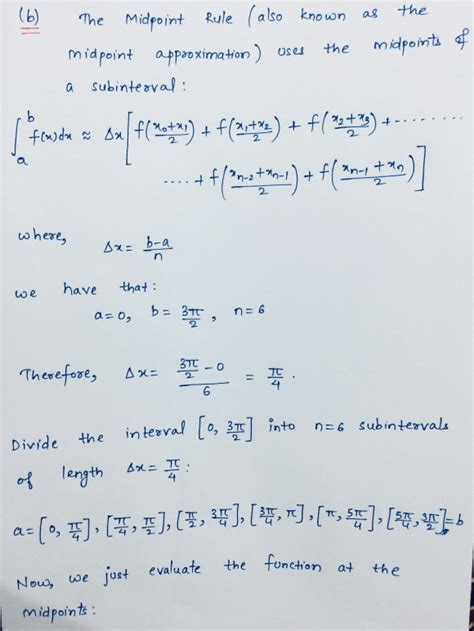 (b) The Midpoint Rule (also known as the
midpoint approximation) uses the midpoints of
a subinterval :
∫_a^b f(x)dx ≈ Δx[f((x₀+x₁)/2) + f((x₁+x₂)/2) + f((x₂+x₃)/2) + ........
.... + f((x_{n-2}+x_{n-1})/2) + f((x_{n-1}+x_n)/2)]
where,
Δx = (b-a)/n
we have that :
a=0, b = 3π/2, n=6
Therefore, Δx = (3π/2 - 0)/6 = π/4.
Divide the interval [0, 3π/2] into n=6 subintervals
of length Δx = π/4 :
a=[0, π/4], [π/4, π/2], [π/2, 3π/4], [3π/4, π], [π, 5π/4], [5π/4, 3π/2]=b
Now, we just evaluate the function at the
midpoints :